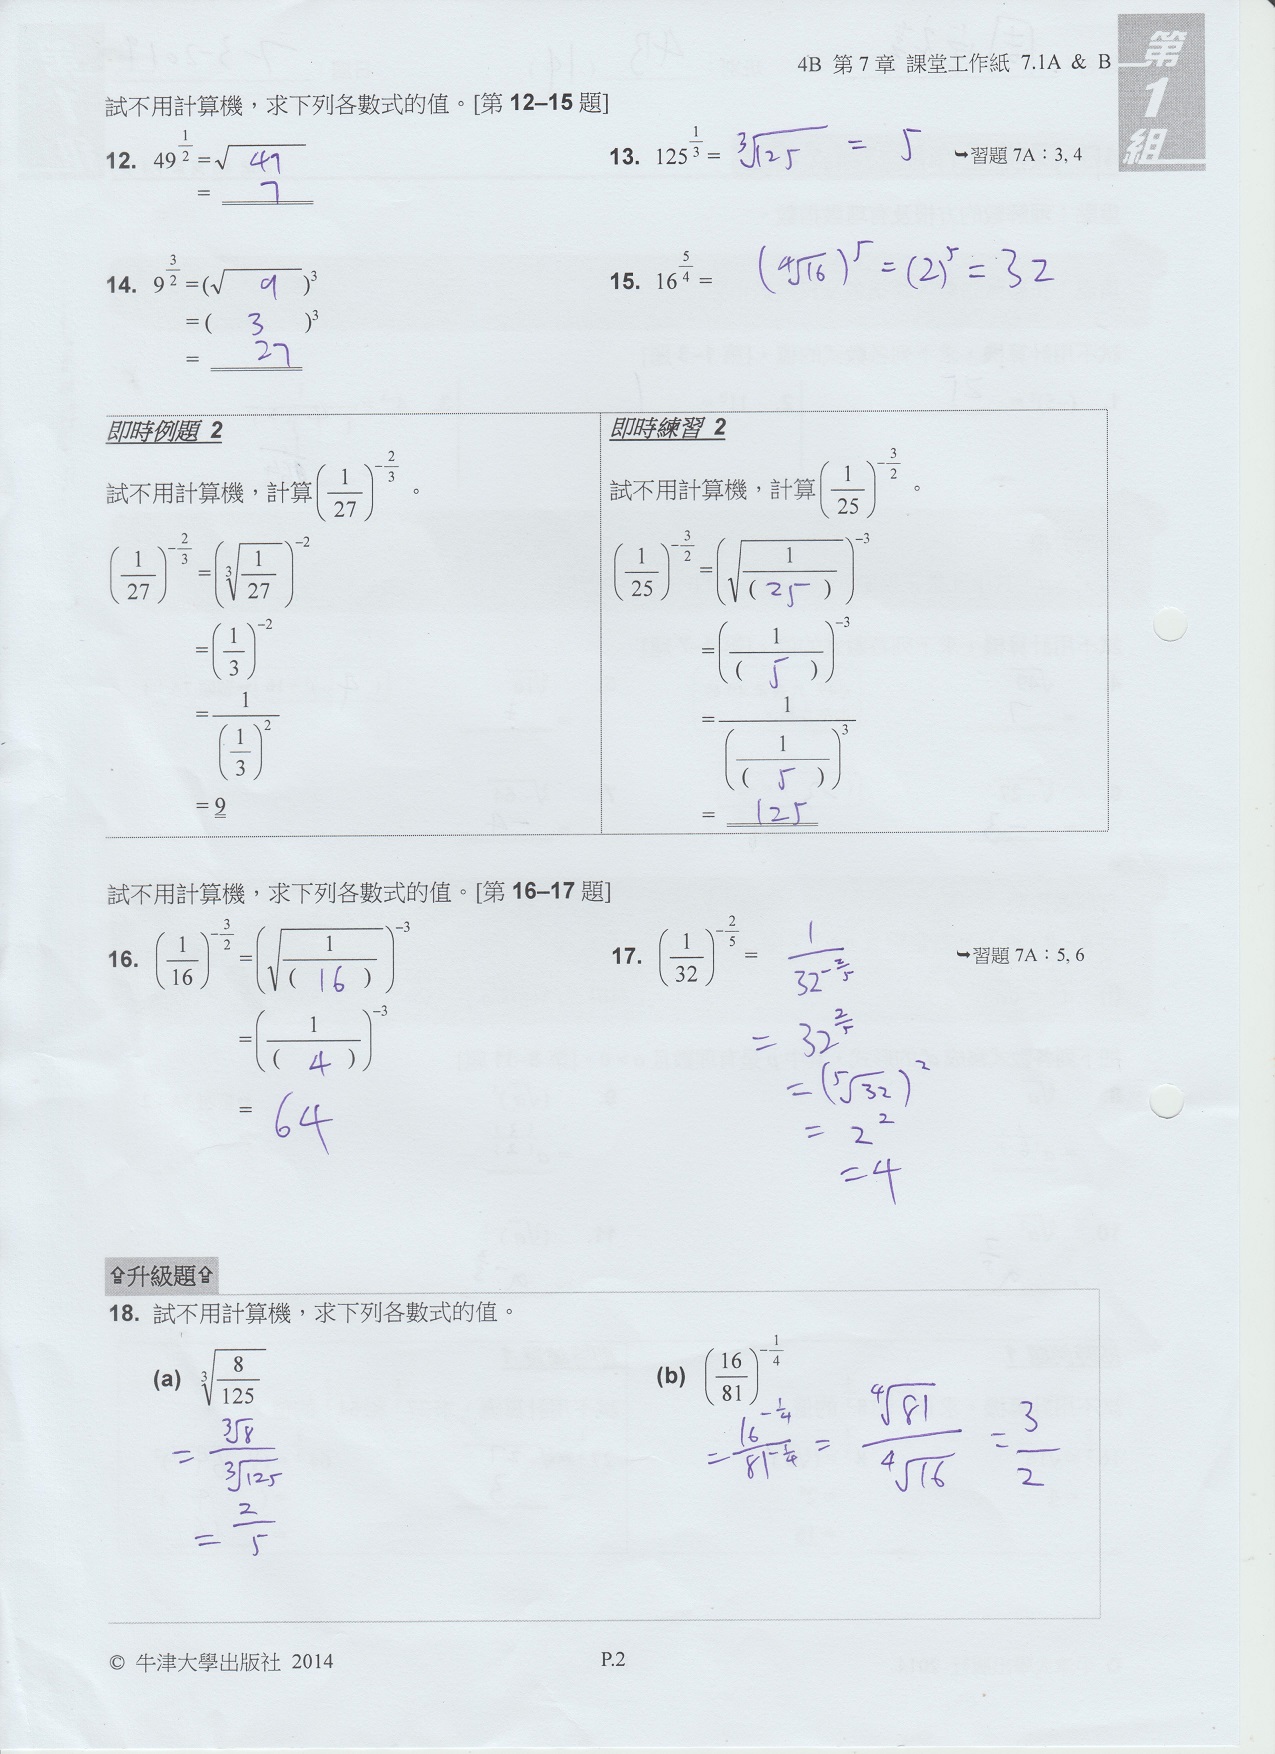 4B 第 7 章 課堂工作紙 7.1A & B
第
1
組
試不用計算機，求下列各數式的值。[第 12–15 題]
12. 49^(1/2) = √49
= 7
13. 125^(1/3) = ³√125 = 5 ➥習題 7A：3, 4
14. 9^(3/2) = (√9)³
= ( 3 )³
= 27
15. 16^(5/4) = (⁴√16)⁵ = (2)⁵ = 32
即時例題 2
試不用計算機，計算(1/27)^(−2/3)。
(1/27)^(−2/3) = (³√(1/27))^(−2)
= (1/3)^(−2)
= 1/(1/3)²
= 9
即時練習 2
試不用計算機，計算(1/25)^(−3/2)。
(1/25)^(−3/2) = (√(1/( 25 )))^(−3)
= (1/( 5 ))^(−3)
= 1/(1/( 5 ))³
= 125
試不用計算機，求下列各數式的值。[第 16–17 題]
16. (1/16)^(−3/2) = (√(1/( 16 )))^(−3)
= (1/( 4 ))^(−3)
= 64
17. (1/32)^(−2/5) = 1/32^(−2/5) ➥習題 7A：5, 6
= 32^(2/5)
= (⁵√32)²
= 2²
= 4
⇧升級題⇧
18. 試不用計算機，求下列各數式的值。
(a) ³√(8/125)
= ³√8/³√125
= 2/5
(b) (16/81)^(−1/4)
= 16^(−1/4)/81^(−1/4) = ⁴√81/⁴√16 = 3/2
© 牛津大學出版社 2014 P.2